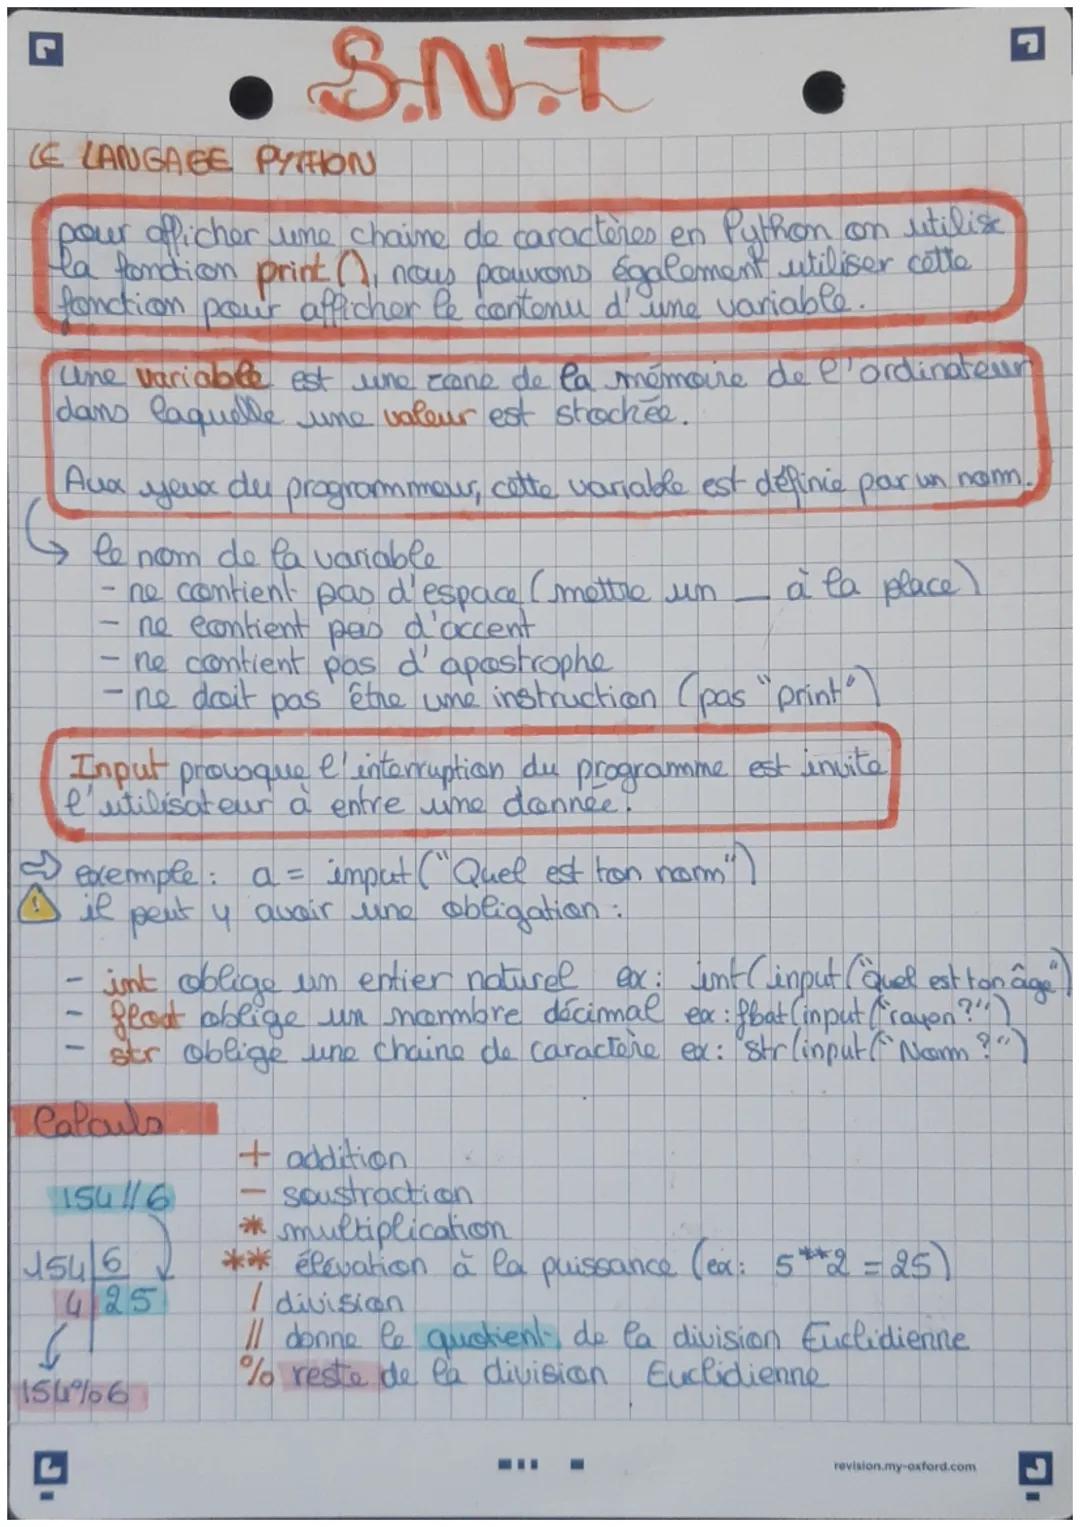 S.N.T
LE LANGAGE PYTHON
pour afficher une chaine de caractères en Python on utilise
la fonction print(), nous pouvons également utiliser cette
fonction pour afficher le contenu d'une variable.
Une variable est une zone de la mémoire de l'ordinateur
dans laquelle une valeur est stockée.
Aux yeux du programmeur, cette variable est définie par un nom.
le nom de la variable
- ne contient pas d'espace (mettre un _ à la place)
- ne contient pas d'accent
- ne contient pas d'apostrophe
- ne doit pas être une instruction (pas "print")
Input provoque l'interruption du programme est invite
l'utilisateur à entre une donnée.
⇒ exemple : a = input("Quel est ton nom")
⚠ il peut y avoir une obligation :
- int oblige un entier naturel ex: int(input("Quel est ton âge")
- float oblige un nombre décimal ex: float(input("rayon ?")
- str oblige une chaine de caractère ex: str(input("Nom ?")
Calculs
+ addition
154//6
- soustraction
* multiplication
154 6
** élévation à la puissance (ex: 5**2 = 25)
4 25
/ division
// donne le quotient de la division Euclidienne
154%6
% reste de la division Euclidienne
revision.my-oxford.com